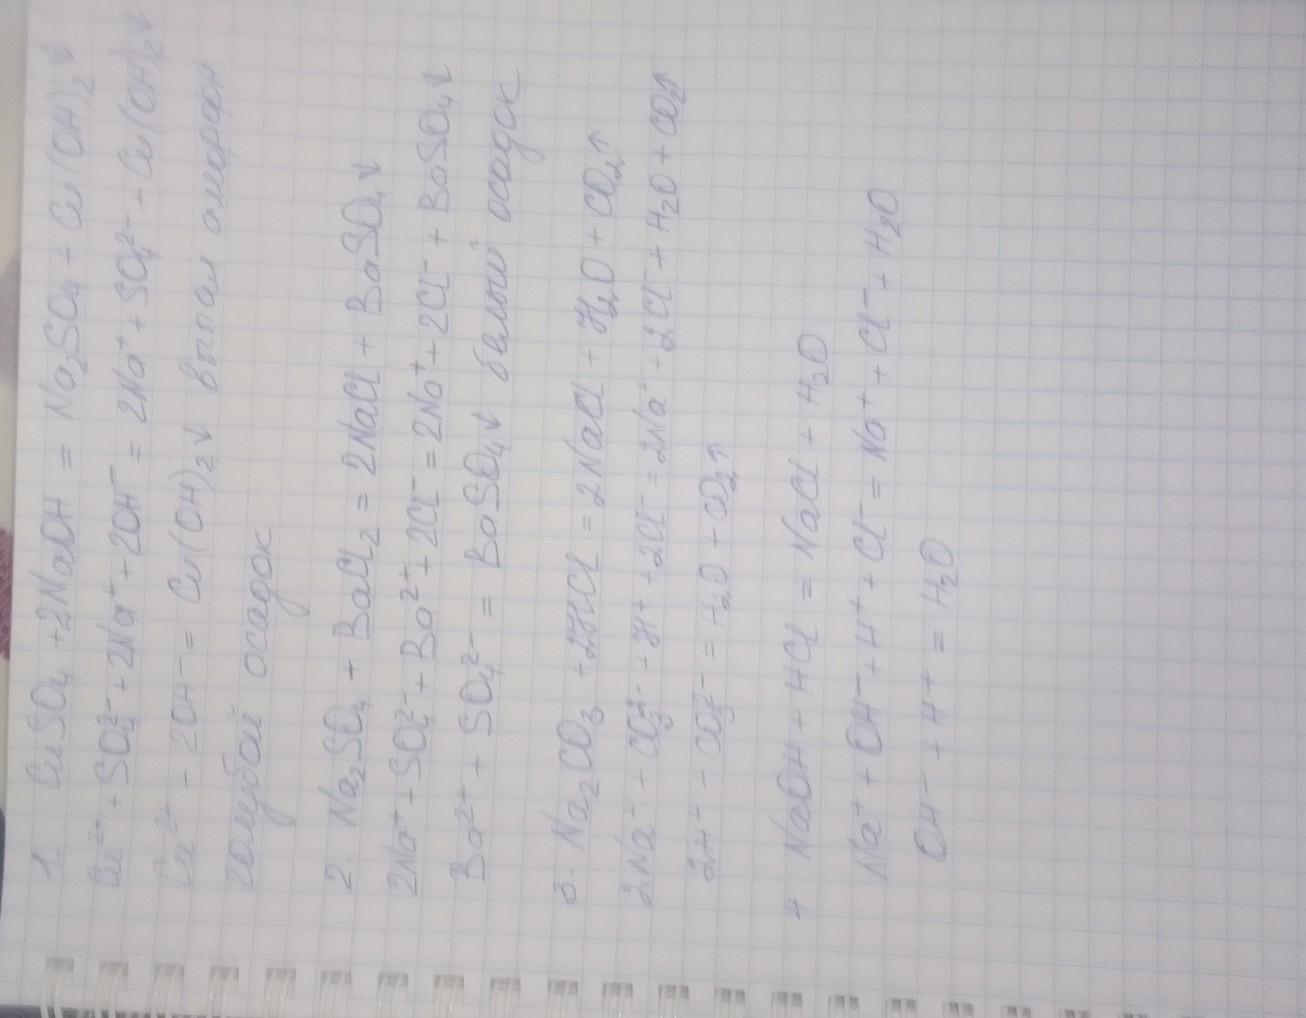 1. CuSO₄ + 2NaOH = Na₂SO₄ + Cu(OH)₂↓
Cu²⁺ + SO₄²⁻ + 2Na⁺ + 2OH⁻ = 2Na⁺ + SO₄²⁻ + Cu(OH)₂↓
Cu²⁺ + 2OH⁻ = Cu(OH)₂↓ выпал аморфн
голубой осадок
2. Na₂SO₄ + BaCl₂ = 2NaCl + BaSO₄↓
2Na⁺ + SO₄²⁻ + Ba²⁺ + 2Cl⁻ = 2Na⁺ + 2Cl⁻ + BaSO₄↓
Ba²⁺ + SO₄²⁻ = BaSO₄↓ белый осадок
3. Na₂CO₃ + 2HCl = 2NaCl + H₂O + CO₂↑
2Na⁺ + CO₃²⁻ + H⁺ + 2Cl⁻ = 2Na⁺ + 2Cl⁻ + H₂O + CO₂↑
2H⁺ + CO₃²⁻ = H₂O + CO₂↑
4 NaOH + HCl = NaCl + H₂O
Na⁺ + OH⁻ + H⁺ + Cl⁻ = Na⁺ + Cl⁻ + H₂O
OH⁻ + H⁺ = H₂O